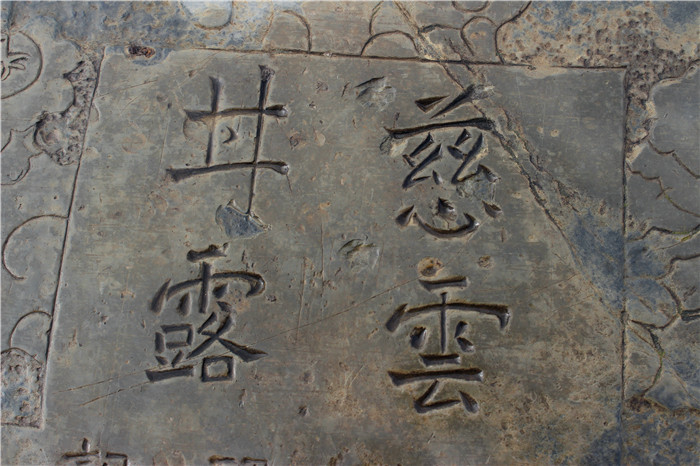 慈雲
甘露